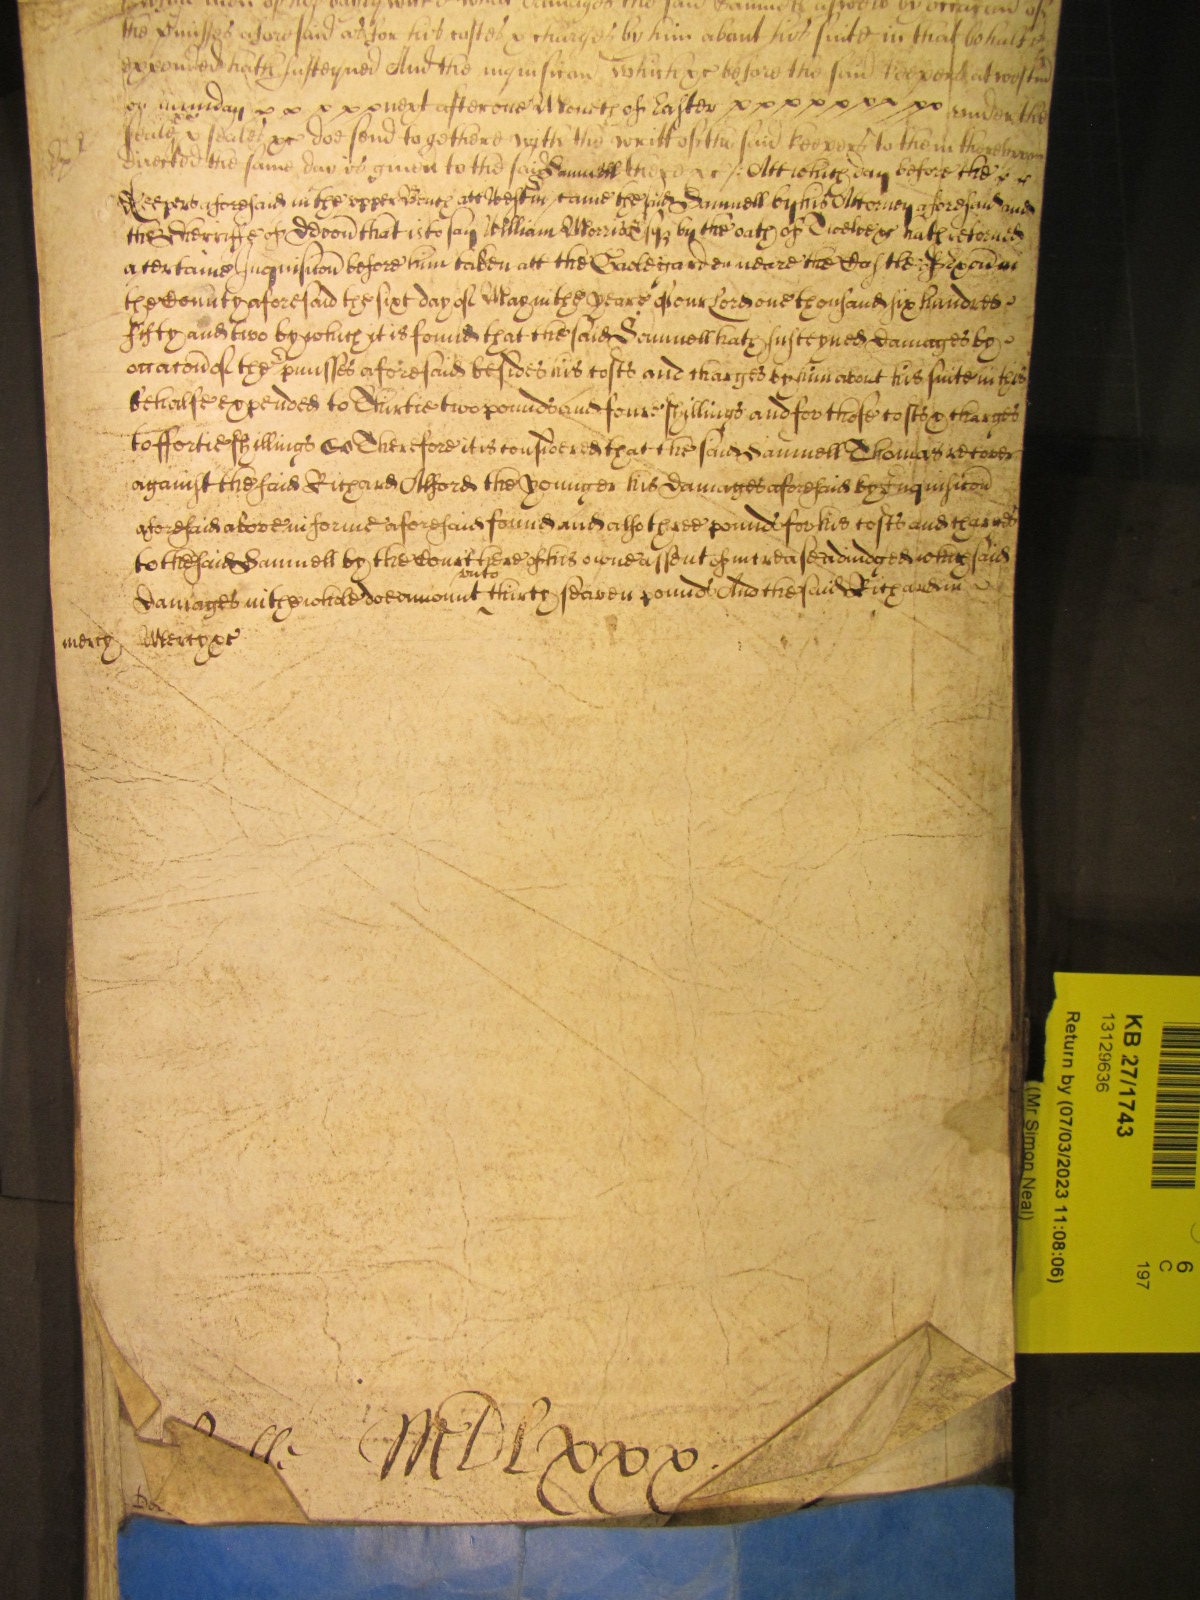 the p'misses aforesaid as for his costes & charges by him about his suite in that behalfe
expended hath susteyned And the inquisicon which &c before the said keepers at westm
on munday x x x x x next after one Moneth of Easter x x x x x x x x x under the
seale & seales &c doe send togethere with the writt of the said keepers to them thereupon
directed the same day is given to the said Samuell there &c / Att which day before the x x
Keepers aforesaid in the upper Bench att Westm came the said Samuell by his Attorney aforesaid and
the Sherriffe of Devon that is to say William Morrice Esq by the oath of Twelve &c hath retorned
a certaine Inquisicon before him taken att the Castle near the Castle of Exon in
the County aforesaid the sixt day of May in the yeare of our Lord one thousand six hundred
fifty and two by which it is found that the said Samuell hath susteyned damages by
occacon of the p'misses aforesaid besides his costs and charges by him about his suite in this
behalfe expended to Thirtie two pounds and foure shillings and for those costs & charges
to ffortie shillings Therefore it is considered that the said Samuell Thomas recover
against the said Richard Alford the younger his damages aforesaid by Inquisicon
aforesaid above in forme aforesaid found and also three pounds for his costs and charges
to the said Samuell by the Court here of his owne assent of increase adiudged which said
damages in the whole doe amount unto thirty seaven pounds And the said Richard in
mercy Mercy &c
MDLxxx
KB 27/1743
13129636
Return by (07/03/2023 11:08:06)
(Mr Simon Neal)
6
C
197